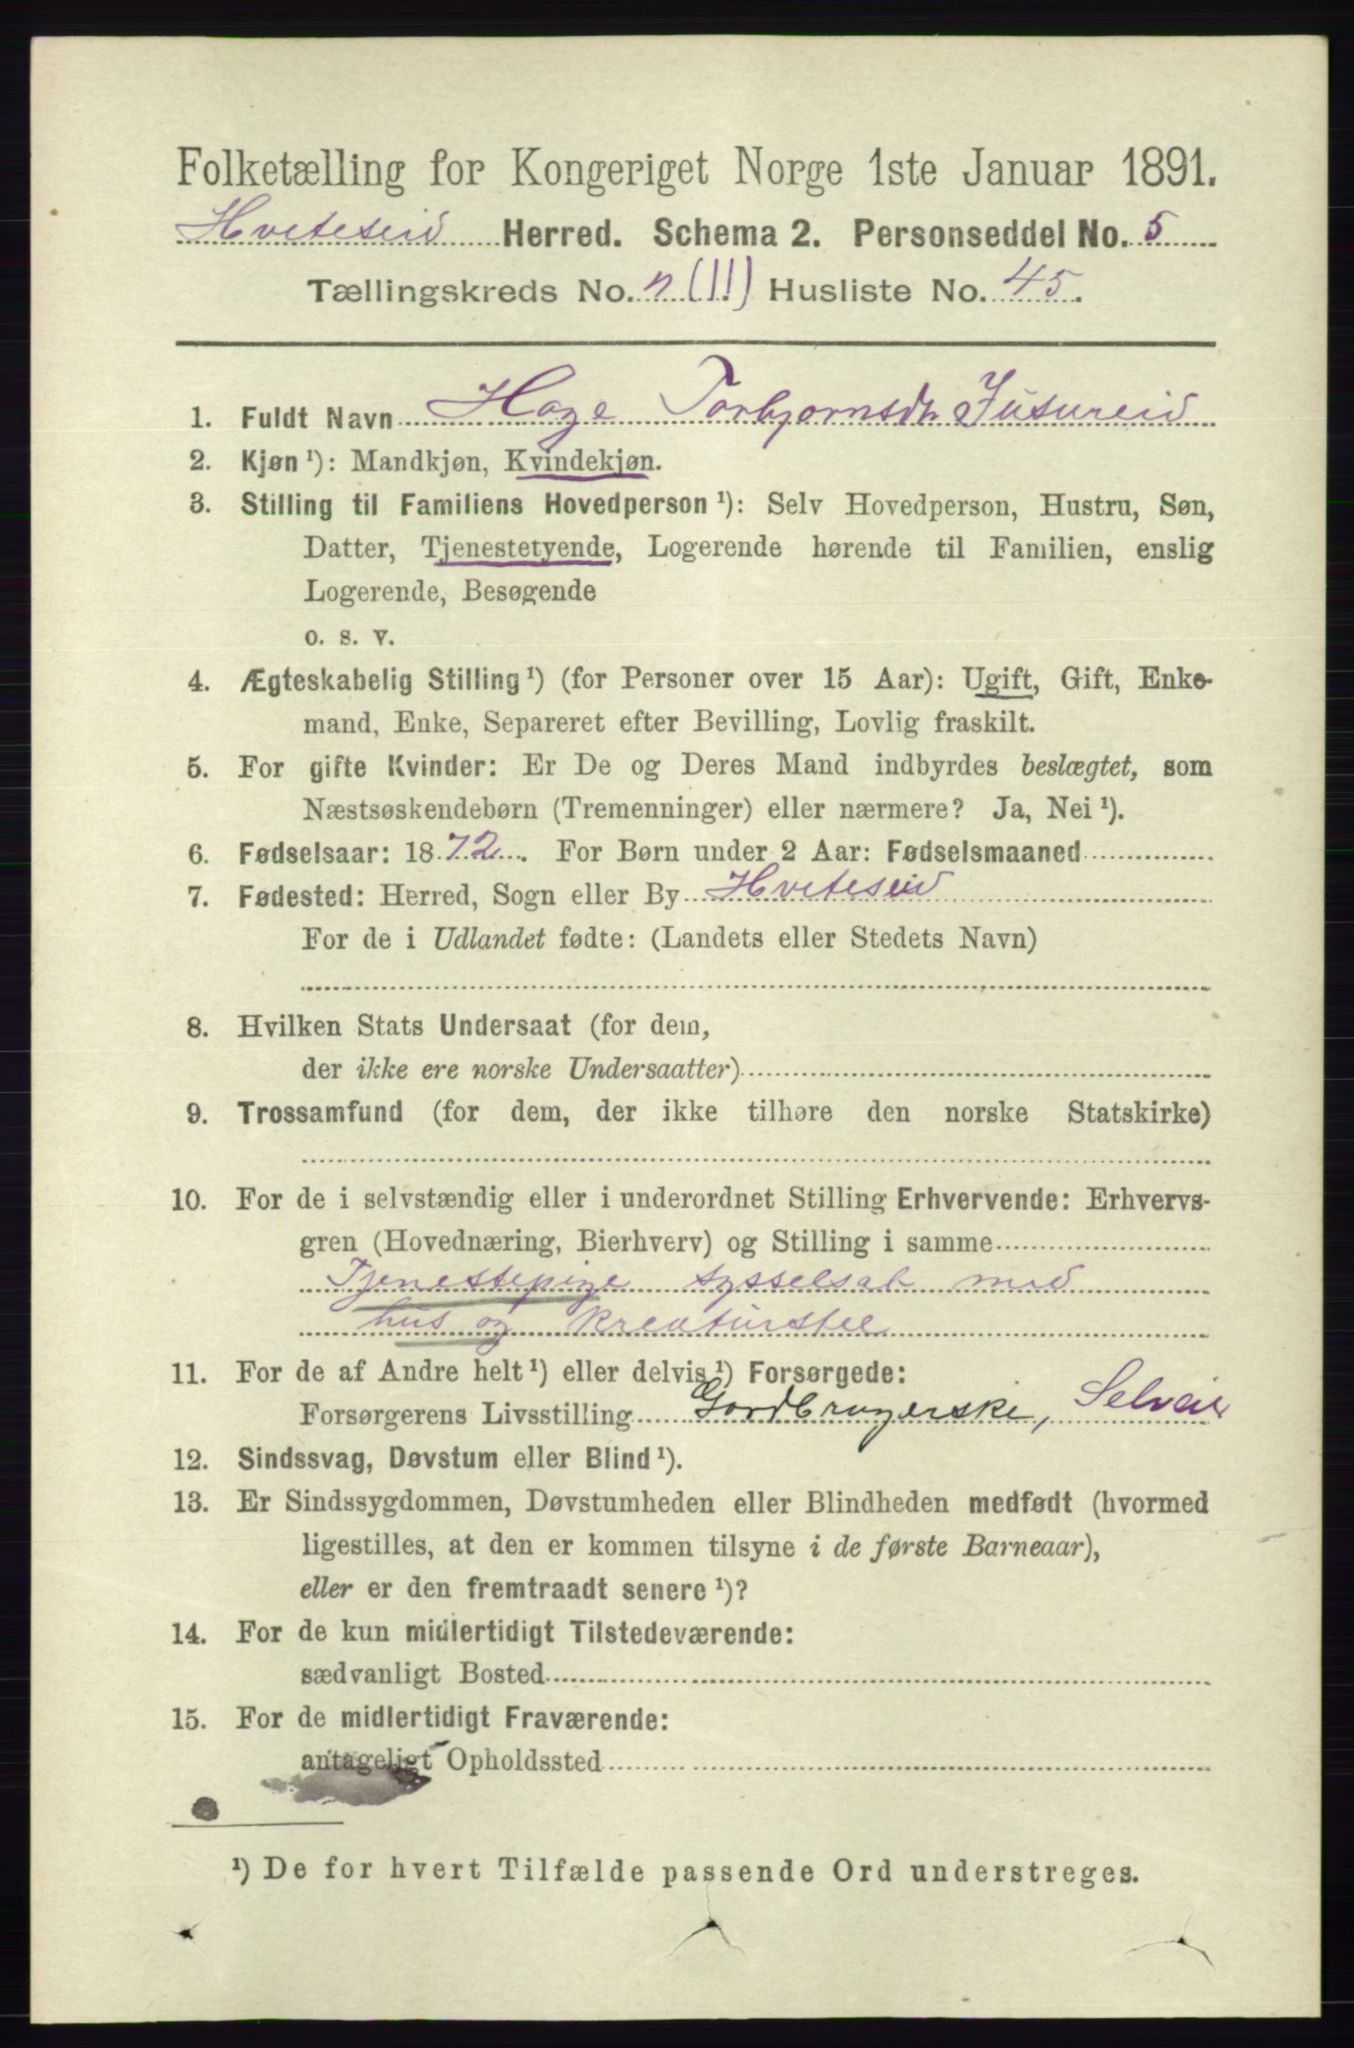 Folketælling for Kongeriget Norge 1ste Januar 1891.
Hviteseid Herred. Schema 2. Personseddel No. 5
Tællingskreds No. (11) Husliste No. 45.
1. Fuldt Navn Torbjørnsdtr Jusureid
2. Kjøn ¹): Mandkjøn, Kvindekjøn.
3. Stilling til Familiens Hovedperson ¹): Selv Hovedperson, Hustru, Søn,
Datter, Tjenestetyende, Logerende hørende til Familien, enslig
Logerende, Besøgende
o. s. v.
4. Ægteskabelig Stilling ¹) (for Personer over 15 Aar): Ugift, Gift, Enke-
mand, Enke, Separeret efter Bevilling, Lovlig fraskilt.
5. For gifte Kvinder: Er De og Deres Mand indbyrdes beslægtet, som
Næstsøskendebørn (Tremenninger) eller nærmere? Ja, Nei ¹).
6. Fødselsaar: 1872. For Børn under 2 Aar: Fødselsmaaned
7. Fødested: Herred, Sogn eller By Hviteseid
For de i Udlandet fødte: (Landets eller Stedets Navn)
8. Hvilken Stats Undersaat (for dem,
der ikke ere norske Undersaatter)
9. Trossamfund (for dem, der ikke tilhøre den norske Statskirke)
10. For de i selvstændig eller i underordnet Stilling Erhvervende: Erhvervs-
gren (Hovednæring, Bierhverv) og Stilling i samme
Tjenestepige sysselsat med
hus og kreaturstel
11. For de af Andre helt ¹) eller delvis ¹) Forsørgede:
Forsørgerens Livsstilling Gardbrugerske, Selveier
12. Sindssvag, Døvstum eller Blind ¹).
13. Er Sindssygdommen, Døvstumheden eller Blindheden medfødt (hvormed
ligestilles, at den er kommen tilsyne i de første Barneaar),
eller er den fremtraadt senere ¹)?
14. For de kun midlertidigt Tilstedeværende:
sædvanligt Bosted
15. For de midlertidigt Fraværende:
antageligt Opholdssted
¹) De for hvert Tilfælde passende Ord understreges.